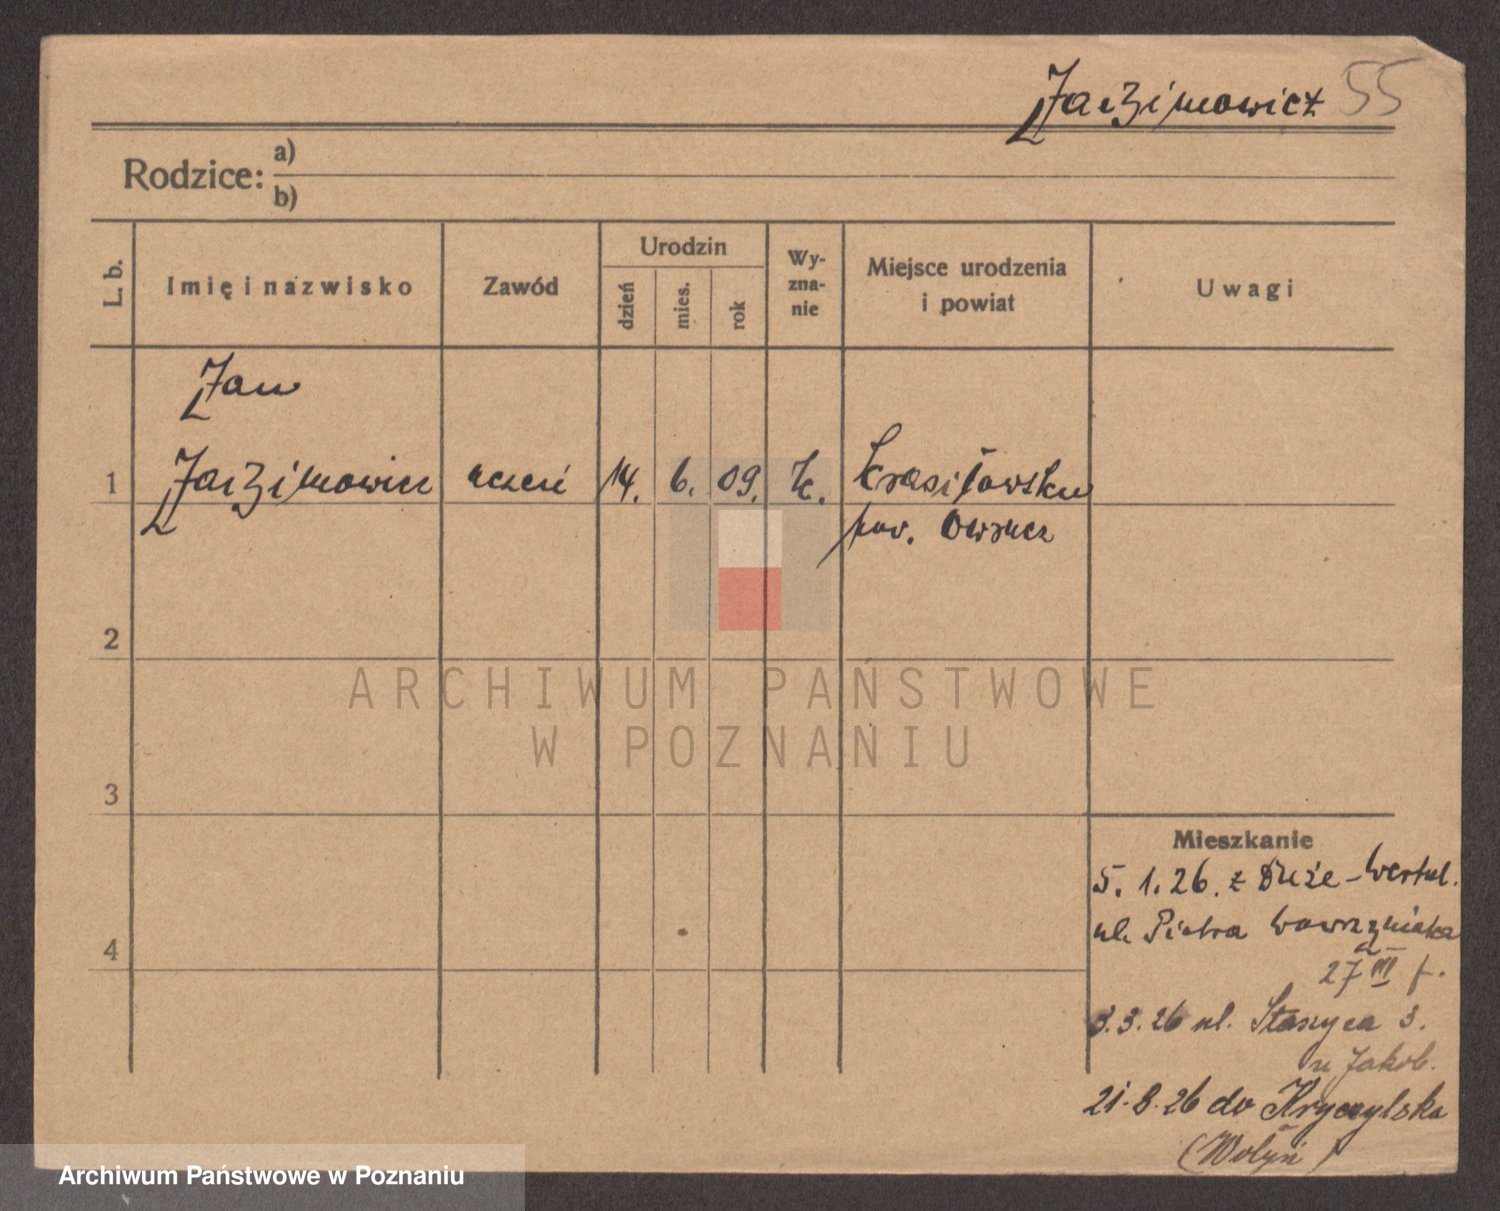 Jaczimowicz 55
Rodzice: a)
b)
L. b. Imię i nazwisko Zawód Urodzin dzień mies. rok Wy-zna-nie Miejsce urodzenia i powiat Uwagi
Jan
1 Jaczimowicz uczeń 14. 6. 09. K.
pow. Owrucz
2
ARCHIWUM PAŃSTWOWE
W POZNANIU
3
Mieszkanie
5. 1. 26. z Duże-
ul. Piotra Wawrzyniaka
4
27 III f.
3.3.26 ul. Staszyca 3.
u Jakób.
21.8.26 do
(Wołyń)
Archiwum Państwowe w Poznaniu